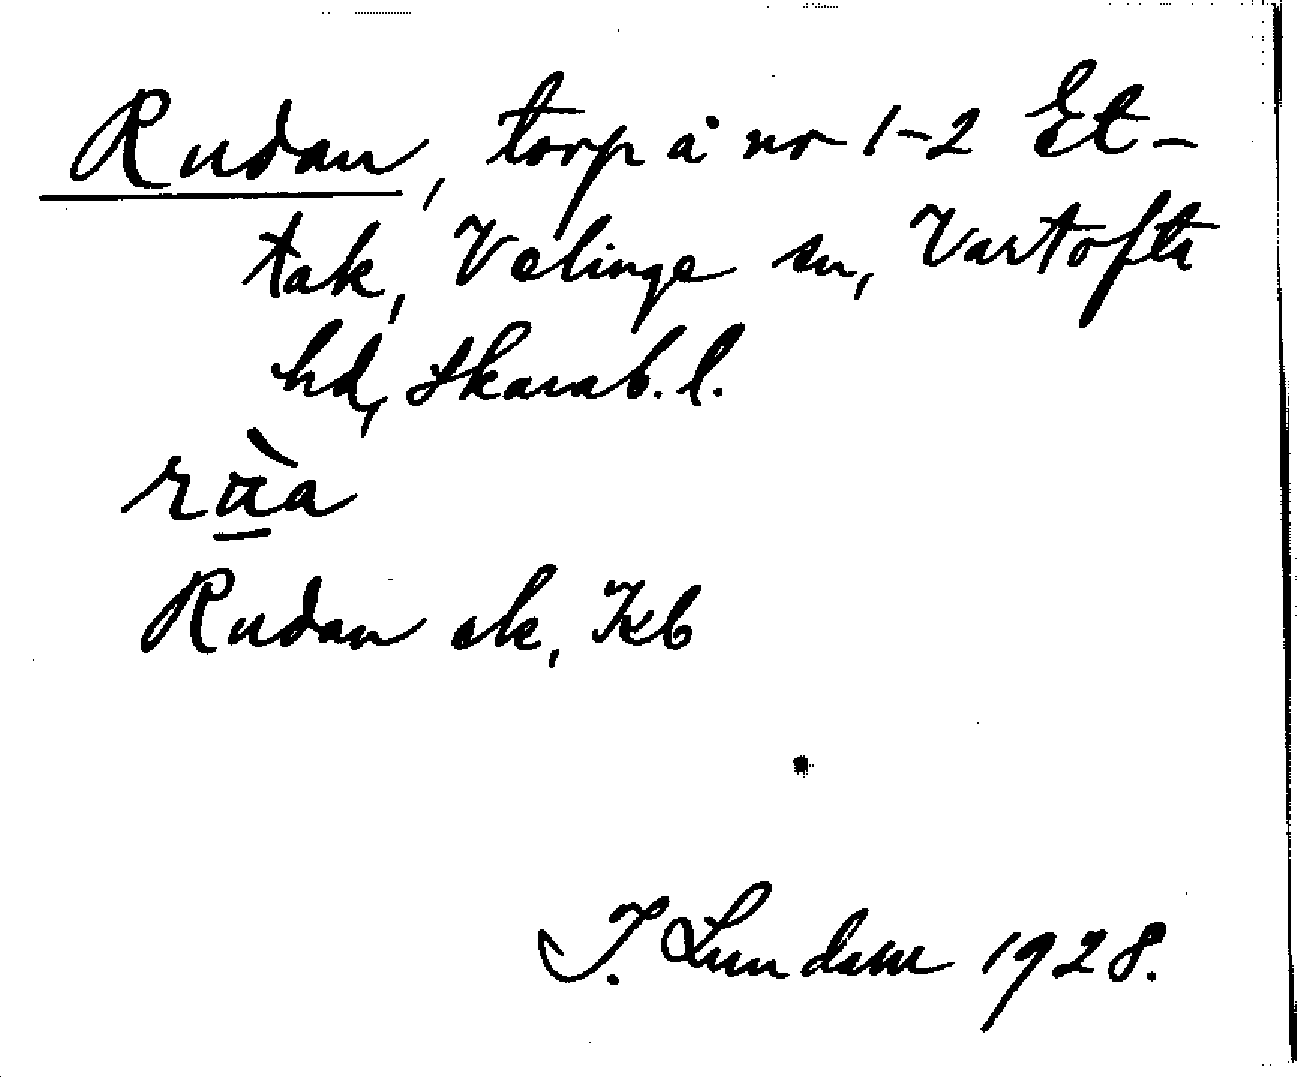 Rudan, torp å nr 1-2 Et-
tak, Velinge sn, Vartofta
hd, Skarab. l.
Rudan ek, Kb
I. Lundahl 1928.